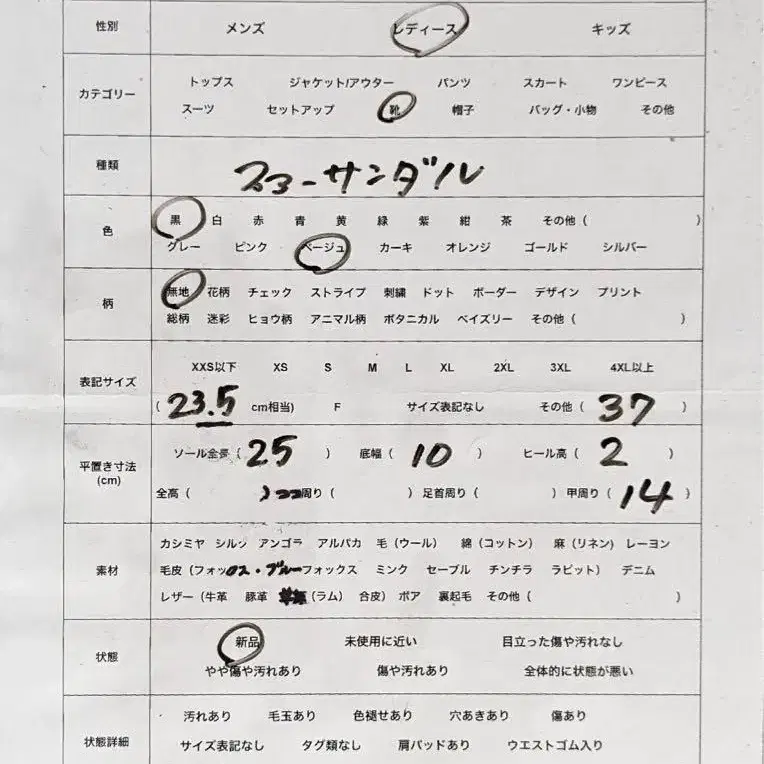 性別 メンズ レディース キッズ
カテゴリー トップス ジャケット/アウター パンツ スカート ワンピース
スーツ セットアップ 靴 帽子 バッグ・小物 その他
種類 スヌーサンダル
色 黒 白 赤 青 黄 緑 紫 紺 茶 その他 ( )
グレー ピンク ベージュ カーキ オレンジ ゴールド シルバー
柄 無地 花柄 チェック ストライプ 刺繍 ドット ボーダー デザイン プリント
総柄 迷彩 ヒョウ柄 アニマル柄 ボタニカル ペイズリー その他 ( )
表記サイズ XXS以下 XS S M L XL 2XL 3XL 4XL以上
( 23.5 cm相当) F サイズ表記なし その他 ( 37 )
平置き寸法 (cm) ソール全長 ( 25 ) 底幅 ( 10 ) ヒール高 ( 2 )
全高 ( ) ココ周り ( ) 足首周り ( ) 甲周り ( 14 )
素材 カシミヤ シルク アンゴラ アルパカ 毛 (ウール) 綿 (コットン) 麻 (リネン) レーヨン
毛皮 (フォックス・ブルーフォックス ミンク セーブル チンチラ ラビット) デニム
レザー (牛革 豚革 (ラム) 合皮) ボア 裏起毛 その他 ( )
状態 新品 未使用に近い 目立った傷や汚れなし
やや傷や汚れあり 傷や汚れあり 全体的に状態が悪い
状態詳細 汚れあり 毛玉あり 色褪せあり 穴あきあり 傷あり
サイズ表記なし タグ類なし 肩パッドあり ウエストゴム入り